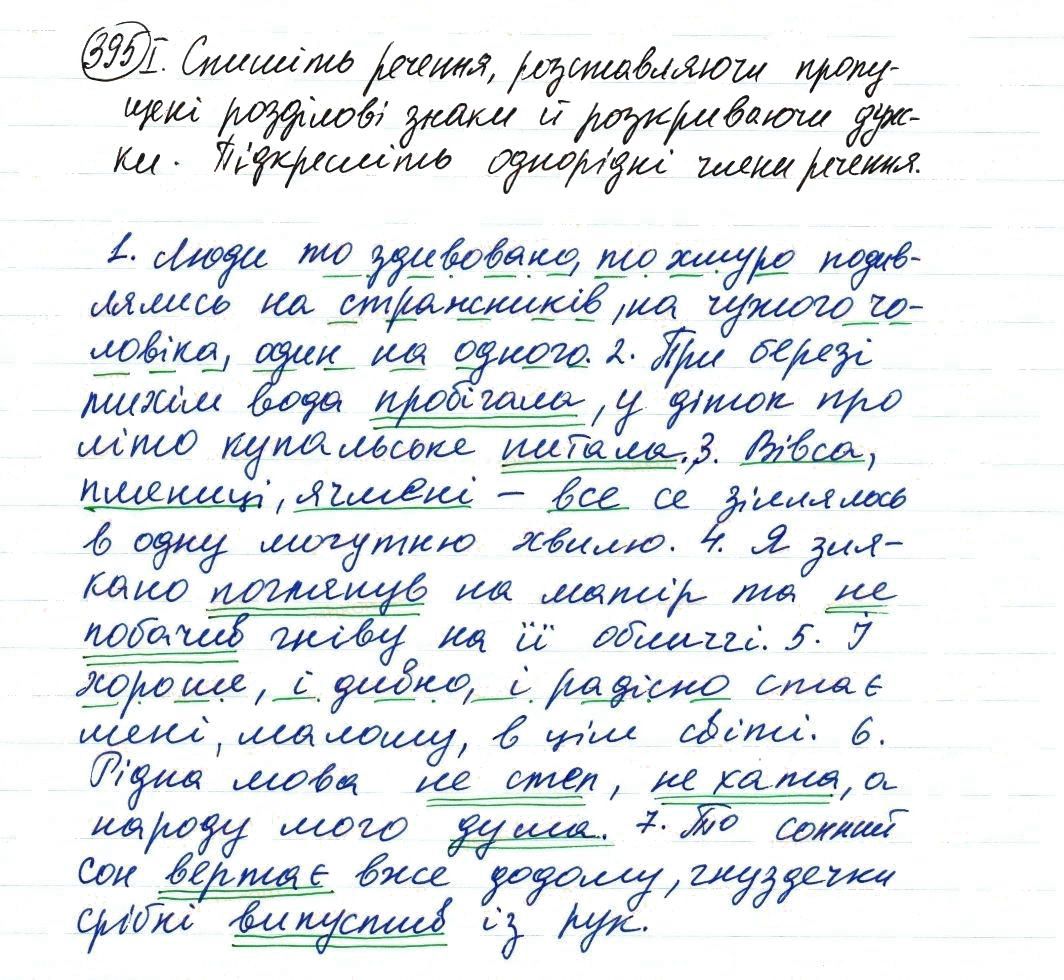 395 I. Спишіть речення, розставляючи пропу-
щені розділові знаки й розкриваючи дуж-
ки. Підкресліть однорідні члени речення.
1. Люди то здивовано, то хмуро подив-
лялись на стражників, на чужого чо-
ловіка, один на одного. 2. При березі
тихім вода пробігала, у діток про
літо купальське питала. 3. Вівса,
пшениці, ячмені – все се зіллялось
в одну могутню хвилю. 4. Я зля-
кано поглянув на матір та не
побачив гніву на її обличчі. 5. І
хороше, і дивно, і радісно стає
мені, малому, в цім світі. 6.
Рідна мова не степ, не хата, а
народу мого дума. 7. То сонний
сон вертає вже додому, гнуздечки
срібні випустив із рук.